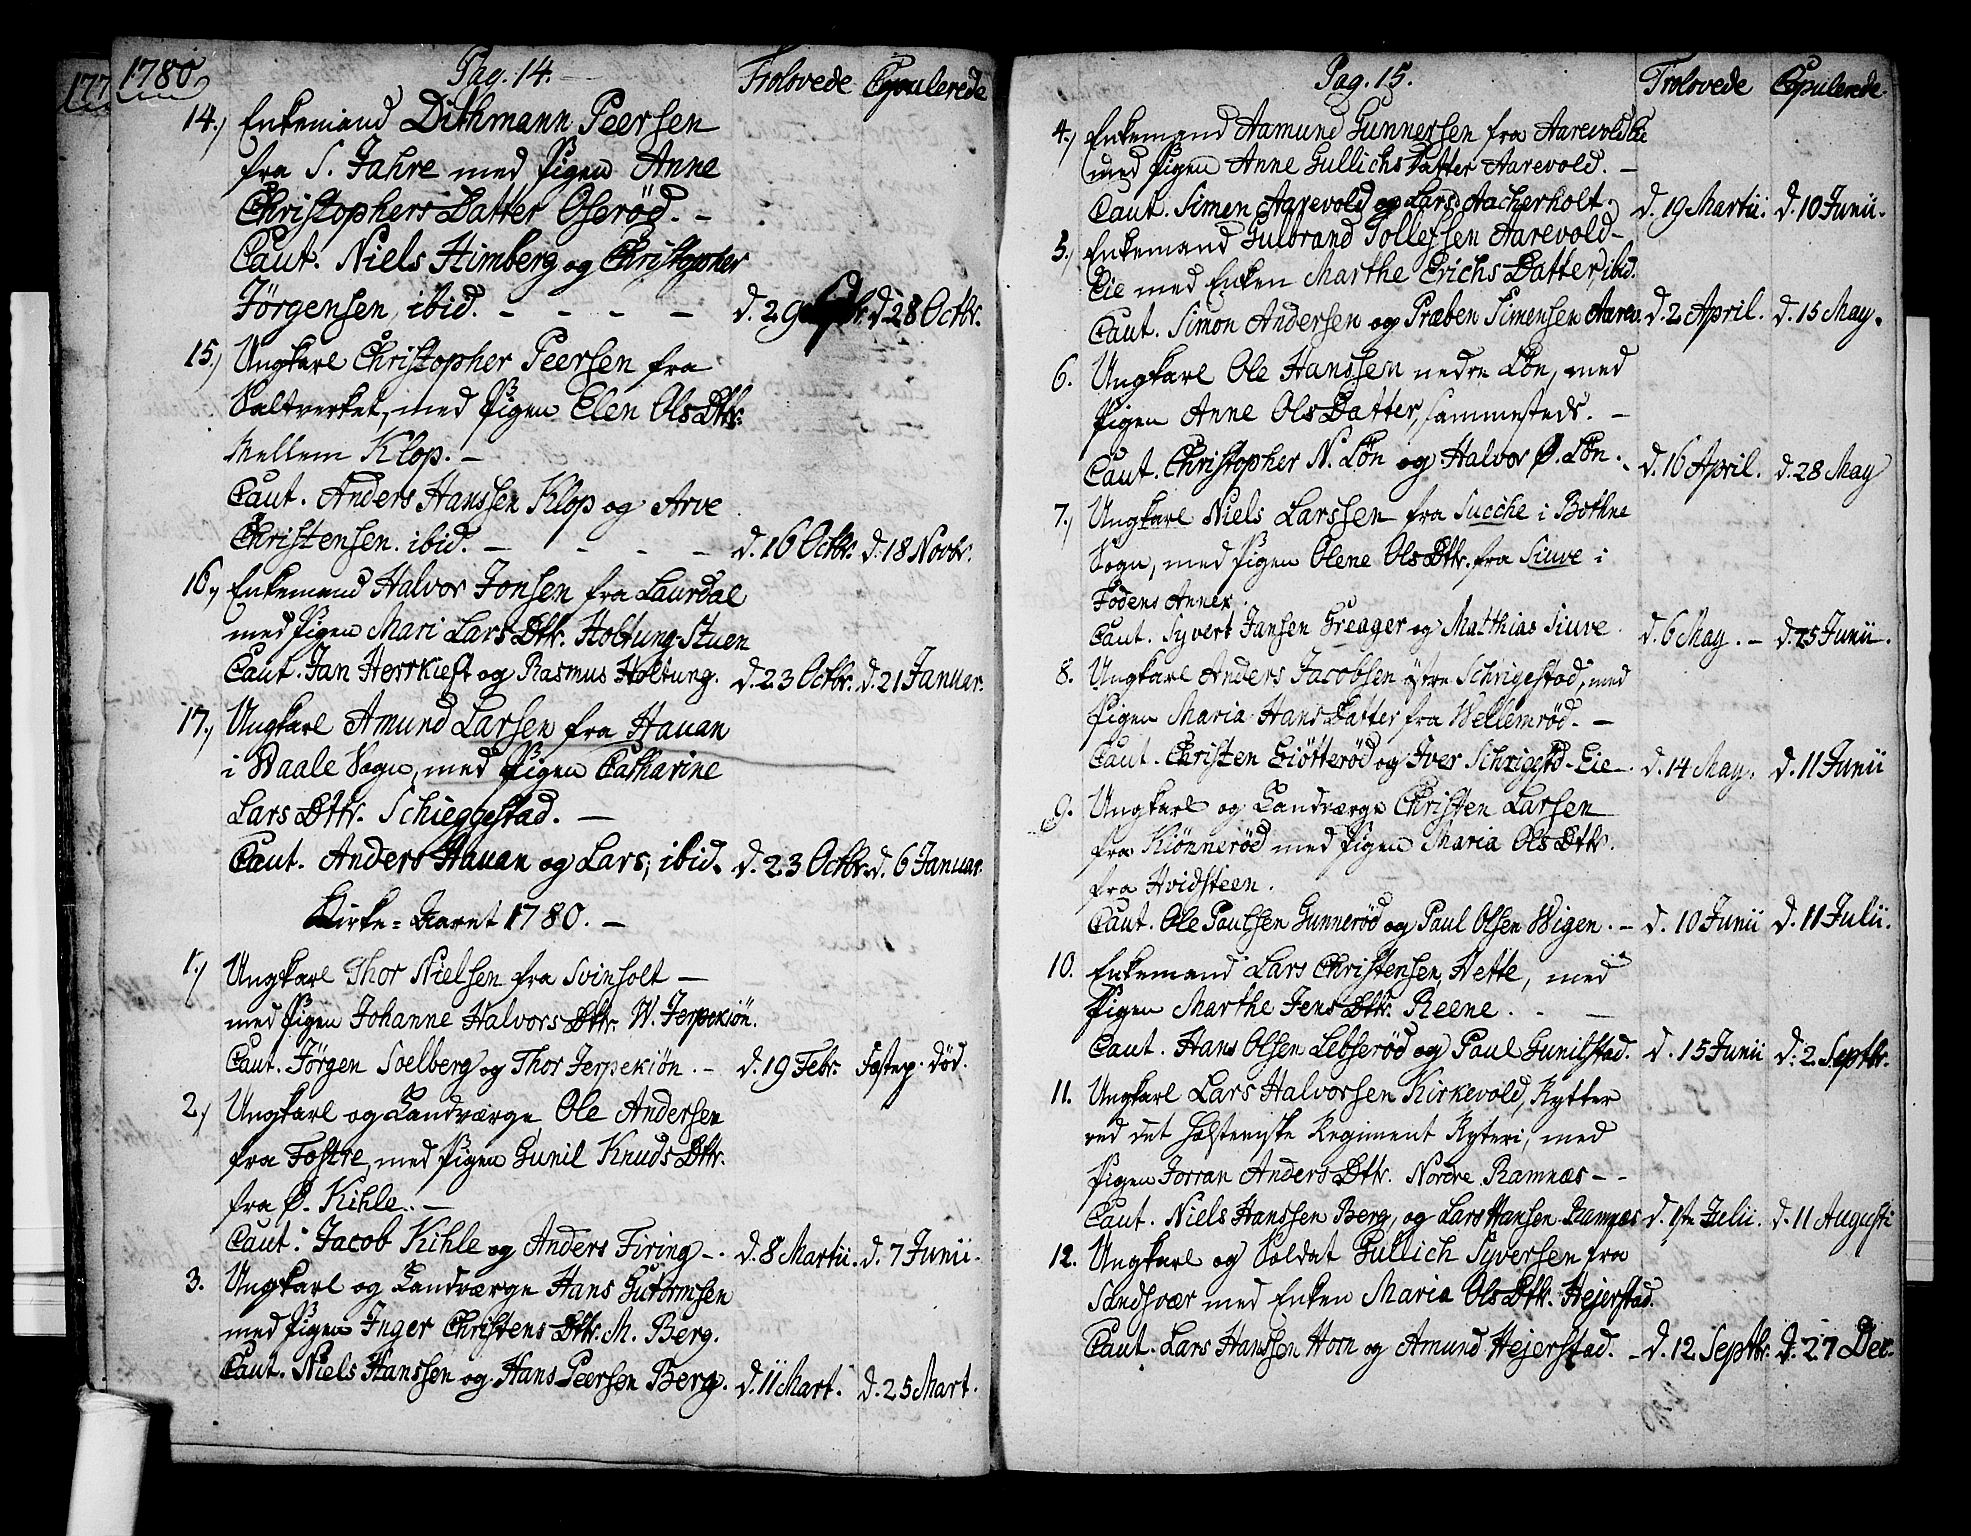 177
1780
Pag. 14.
Trolovede Copulerede
14.) Enkemand Dithmann Peersen
fra S. Jahre med Pigen Anne
Christophers Datter Oserød. -
Caut. Niels Himberg og Christopher
Jörgensen, ibid. - - - - d. 29 d. 28 Octbr.
15.) Ungkarl Christopher Peersen fra
Saltverket, med Pigen Elen Ols Dttr.
Mellem Klop. -
Caut. Anders Hanssen Klop og Arve
Christensen. ibid. - - - - d. 16 Octbr. d. 18 Novbr.
16., Enkemand Halvor Jonsen fra Laurdal
med Pigen Mari Lars Dttr. Holtung-Stuen
Caut. Jan Herrkiest og Rasmus Holtung. d. 23 Octbr. d. 21 Januar.
17., Ungkarl Amund Larsen fra Hauan
i Waale Sogn, med Pigen Catharine
Lars Dttr. Schieggestad. -
Caut. Anders Hauan og Lars, ibid. d. 23 Octbr. d. 6 Januar.
Kirke-Aaret 1780. -
1.) Ungkarl Thor Nielsen fra Svinholt -
med Pigen Johanne Halvors Dttr. W. Jerpekiön.
Caut. Jörgen Soelberg og Thor Jerpekiön. - d. 19 Febr. Fæstep. död.
2.) Ungkarl og Landværge Ole Andersen
fra Fostre, med Pigen Gunil Knuds Dttr.
fra Ø. Kihle. -
Caut. Jacob Kihle og Anders Firing -. d. 8 Martii. d. 7 Junii.
3. Ungkarl og Landværge Hans Gutormsen
med Pigen Inger Christens Dttr. M. Berg.
Caut. Niels Hanssen og Hans Peersen Berg. d. 11 Mart. d. 25 Mart.
Pag. 15.
Trolovede Copulerede.
4.) Enkemand Aamund Gunnersen fra Aarevold Eie
med Pigen Anne Gullichs Datter Aarevold. -
Caut. Simen Aarevold og Lars Aacherholt. d. 19 Martii. d. 10 Junii.
5.) Enkemand Gulbrand Tollefsen Aarevold-
Eie med Enken Marthe Erichs Datter, ibid.
Caut. Simon Andersen og Præben Simensen Aarev. d. 2 April. d. 15 May.
6. Ungkarl Ole Hanssen nedre Lön, med
Pigen Anne Ols Datter, sammesteds. -
Caut. Christopher N. Lön og Halvor Ø. Lön. d. 16 April. d. 28 May
7.) Ungkarl Niels Larssen fra Sucche i Bothne
Sogn, med Pigen Olene Ols Dttr. fra Siuve i
Fodens Annex.
Caut. Syvert Jansen Greager og Matthias Siuve. d. 6 May. - d. 25 Junii.
8. Ungkarl Anders Jacobsen östre Schrigestad, med
Pigen Maria Hans Datter fra Wellemröd. -
Caut. Christen Giötteröd og Iver Schrigstd-Eie-. d. 14 May. d. 11 Junii
9. Ungkarl og Landværge Christen Larsen
fra Kiönneröd med Pigen Maria Ols Dttr.
fra Hvidsteen.
Caut. Ole Paulsen Gunneröd og Paul Olsen Wigen. - d. 10 Junii d. 11 Julii.
10. Enkemand Lars Christensen Hette, med
Pigen Marthe Jens Dttr. Reene. - -
Caut. Hans Olsen Lebseröd og Paul Gunilstad. d. 15 Junii d. 2 Septbr.
11. Ungkarl Lars Halvorsen Kirkevold, Rytter
ved det Holstenske Regiment Ryteri, med
Pigen Jorran Anders Dttr. Nordre Ramnæs - -
Caut. Niels Hanssen Berg, og Lars Hansen Ramnæs d. 1ste Julii. d. 11 Augusti
12. Ungkarl og Soldat Gullich Syversen fra
Sandsvær med Enken Maria Ols Dttr. Hejerstad.
Caut. Lars Hanssen Horn og Amund Hejerstad. - d. 12 Septbr. d. 27 Dec.